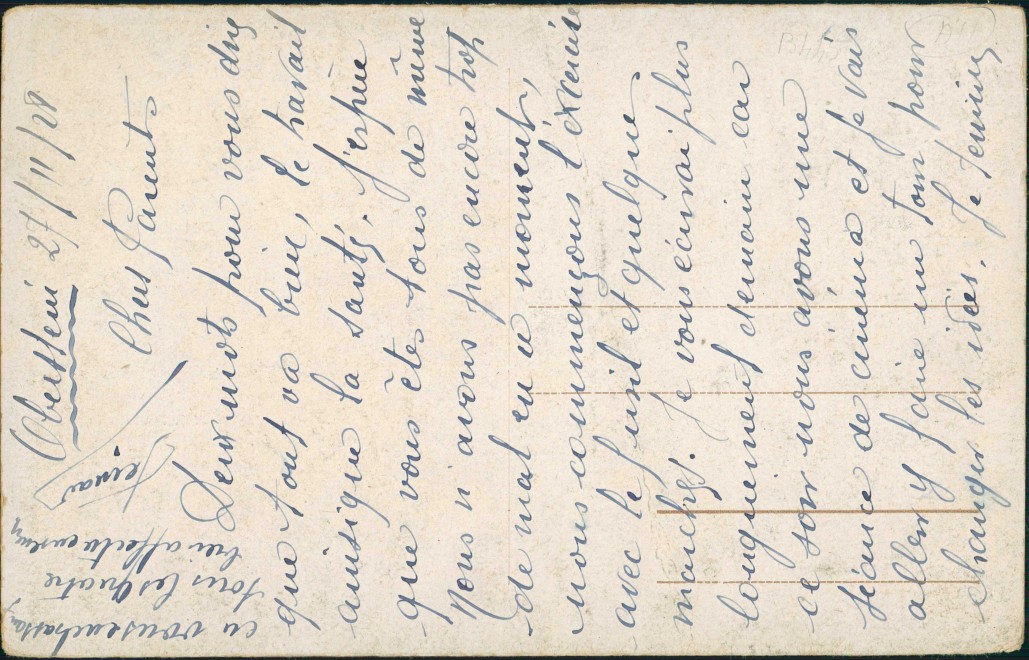 Oberstein 27/11/28
Chers Parents
Deux mots pour vous dire
que tout va bien, le travail
ainsique la santé, j'espère
que vous êtes tous de même
Nous n'avons pas encore trop
de mal en ce moment,
nous commençons l'exercice
avec le fusil et quelque
manches. Je vous écrirai plus
longuement demain car
ce soir nous avons une
séance de cinéma et je vais
aller y faire un tour pour
changer les idées. Je termine
en vous embrassant
tous les quatre
bien affectueusement